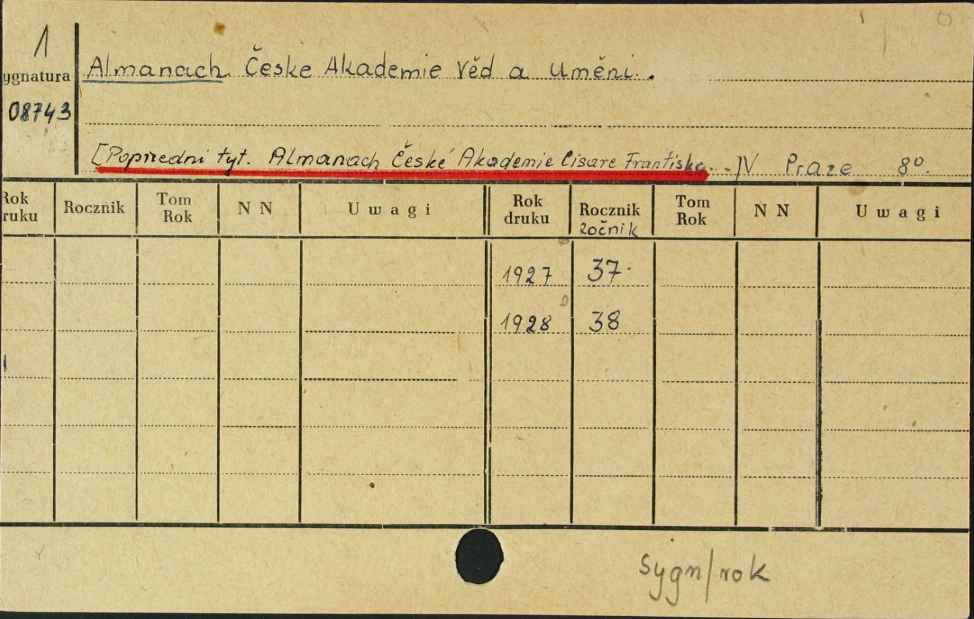 1
ygnatura
08743
Almanach České Akademie Věd a Uměni.
[Poprzedni tyt. Almanach České Akademie Cisaře Františka.] V Praze 8º.
Rok druku Rocznik Tom Rok N N Uwagi Rok druku Rocznik ročnik Tom Rok N N Uwagi
1927 37
1928 38
sygn/rok